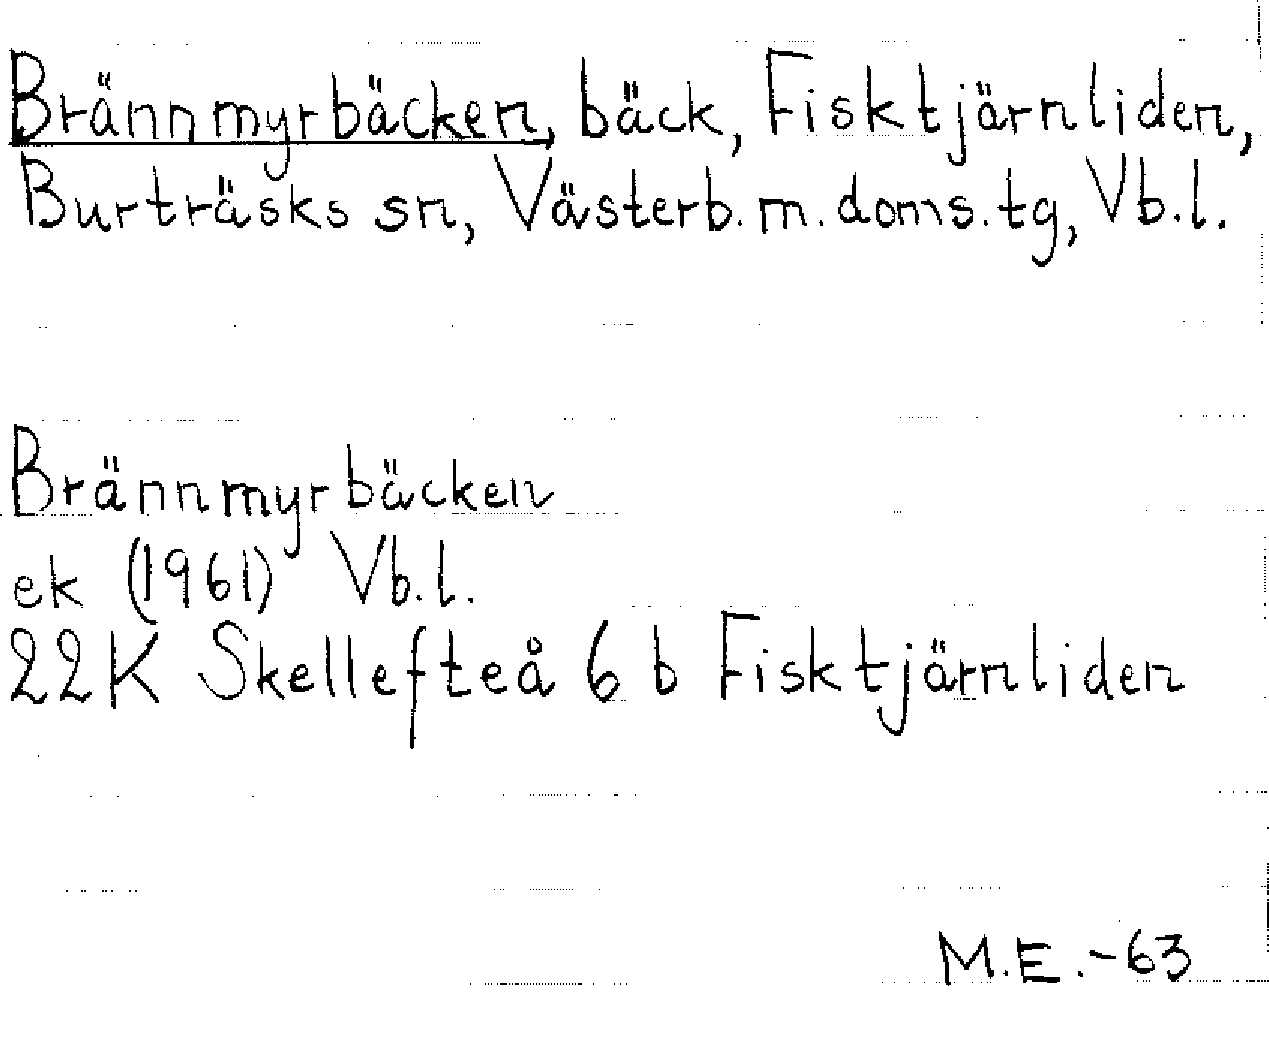 Brännmyrbäcken, bäck, Fisktjärnliden,
Burträsks sn, Västerb.m.doms.tg, Vb.l.
Brännmyrbäcken
ek (1961) Vb.l.
22K Skellefteå 6 b Fisktjärnliden
M.E.-63